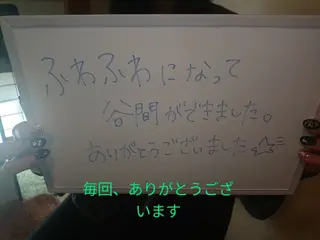 ふわふわになって
谷間ができました。
ありがとうございました
毎回、ありがとうござ
います